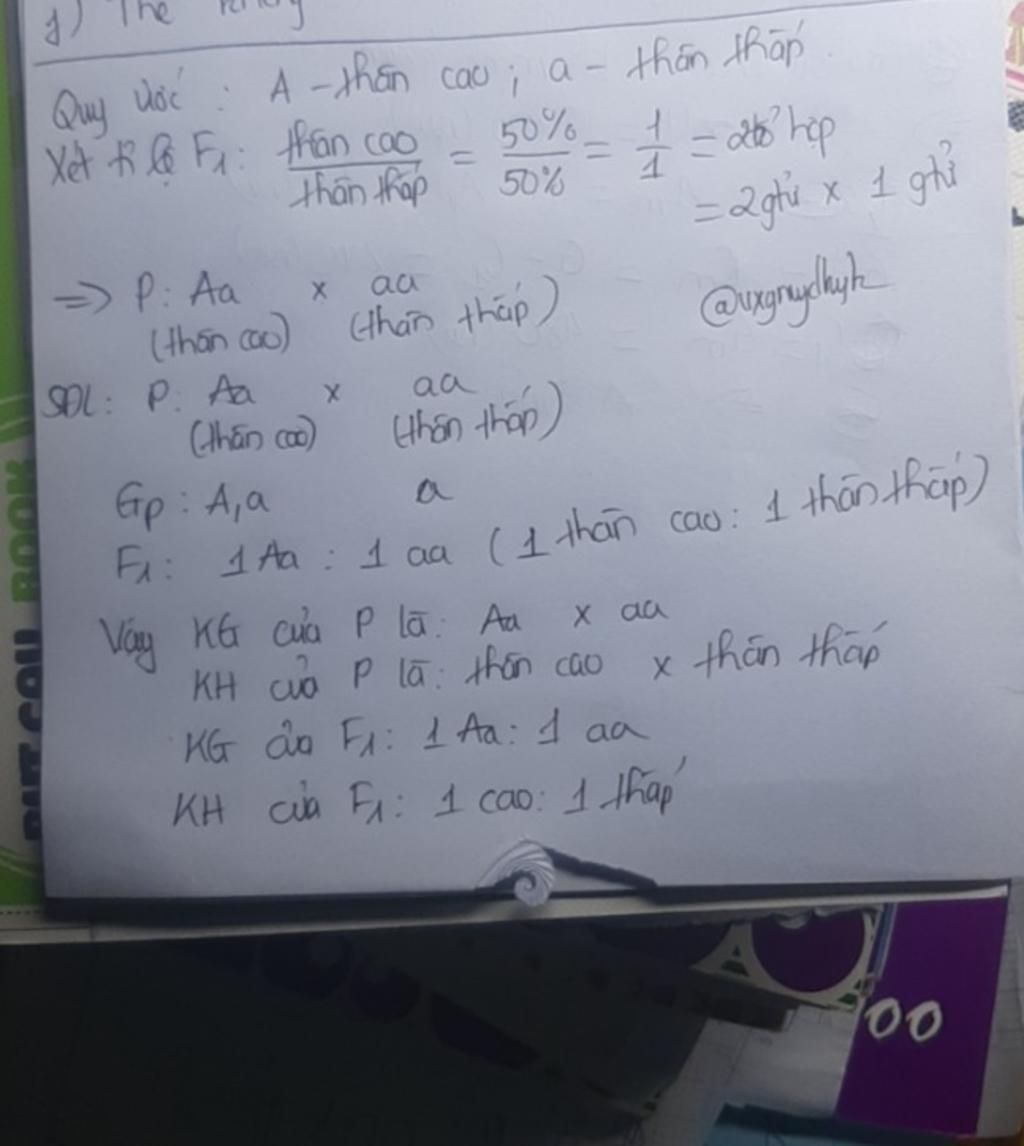 Quy ước : A - thân cao ; a - thân thấp.
Xét tỉ lệ F1: thân cao / thân thấp = 50% / 50% = 1 / 1 = 2 tổ hợp
= 2 gtử x 1 gtử
=> P: Aa x aa
(thân cao) (thân thấp)
@uxgnuydhyh
SĐL: P: Aa x aa
(thân cao) (thân thấp)
Gp : A, a a
F1: 1 Aa : 1 aa (1 thân cao: 1 thân thấp)
Vậy KG của P là: Aa x aa
KH của P là: thân cao x thân thấp
KG của F1: 1 Aa: 1 aa
KH của F1: 1 cao: 1 thấp
BOOK
00